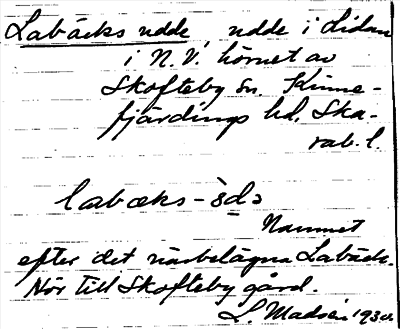 Labäcks udde, udde i Lidan
i N.V. hörnet av
Skofteby sn. Kinne-
fjärdings hd. Ska-
rab. l.
labæks-
Namnet
efter det närbelägna Labäck.
Hör till Skofteby gård.
L. Madsén 1930.